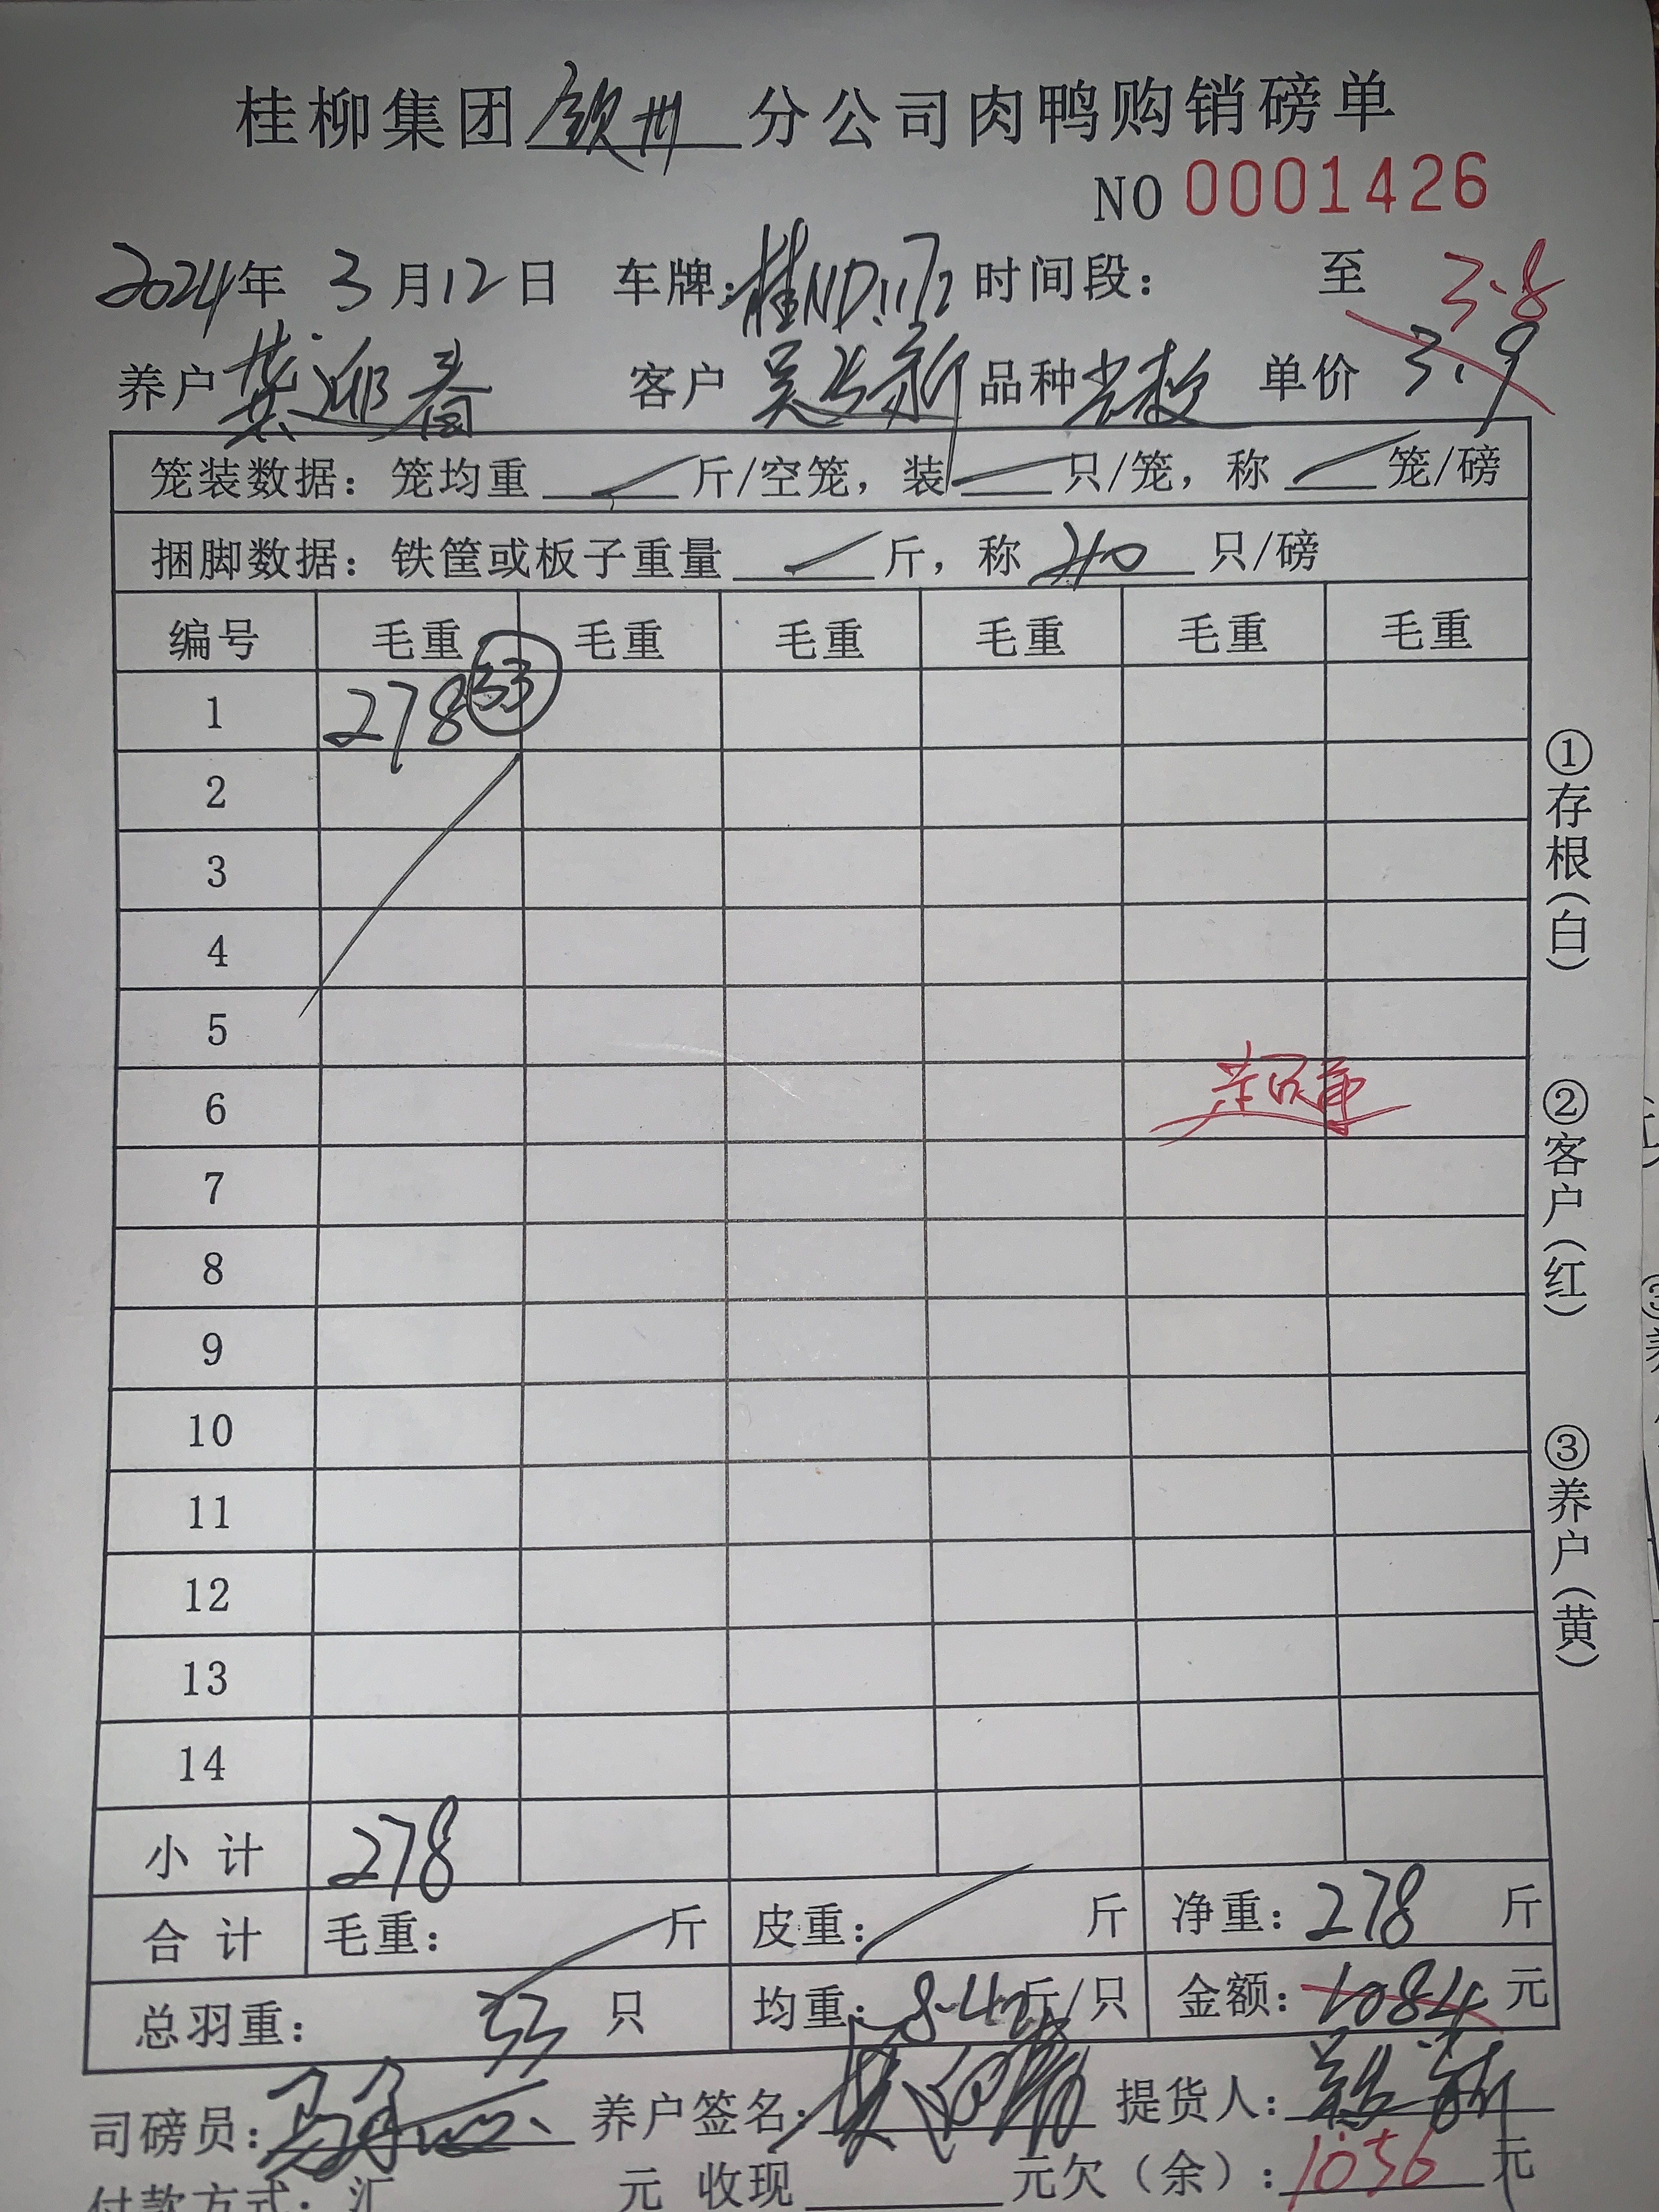 桂柳集团 钦州 分公司肉鸭购销磅单
NO 0001426
2024年 3月12日 车牌:桂ND 时间段: 至 3.8
养户 龚迎春 客户 吴 新 品种 单价 3.9
笼装数据:笼均重 斤/空笼,装 只/笼,称 笼/磅
捆脚数据:铁筐或板子重量 斤,称 只/磅
编号 毛重 毛重 毛重 毛重 毛重 毛重
1 278 33
2
3
4
5
6
7
8
9
10
11
12
13
14
小计 278
合计 毛重: 斤 皮重: 斤 净重:278 斤
总羽重: 33 只 均重:8.42斤/只 金额:1084元
司磅员: 养户签名: 提货人:
付款方式:汇 元 收现 元欠(余):1056 元
①存根(白)
②客户(红)
③养户(黄)